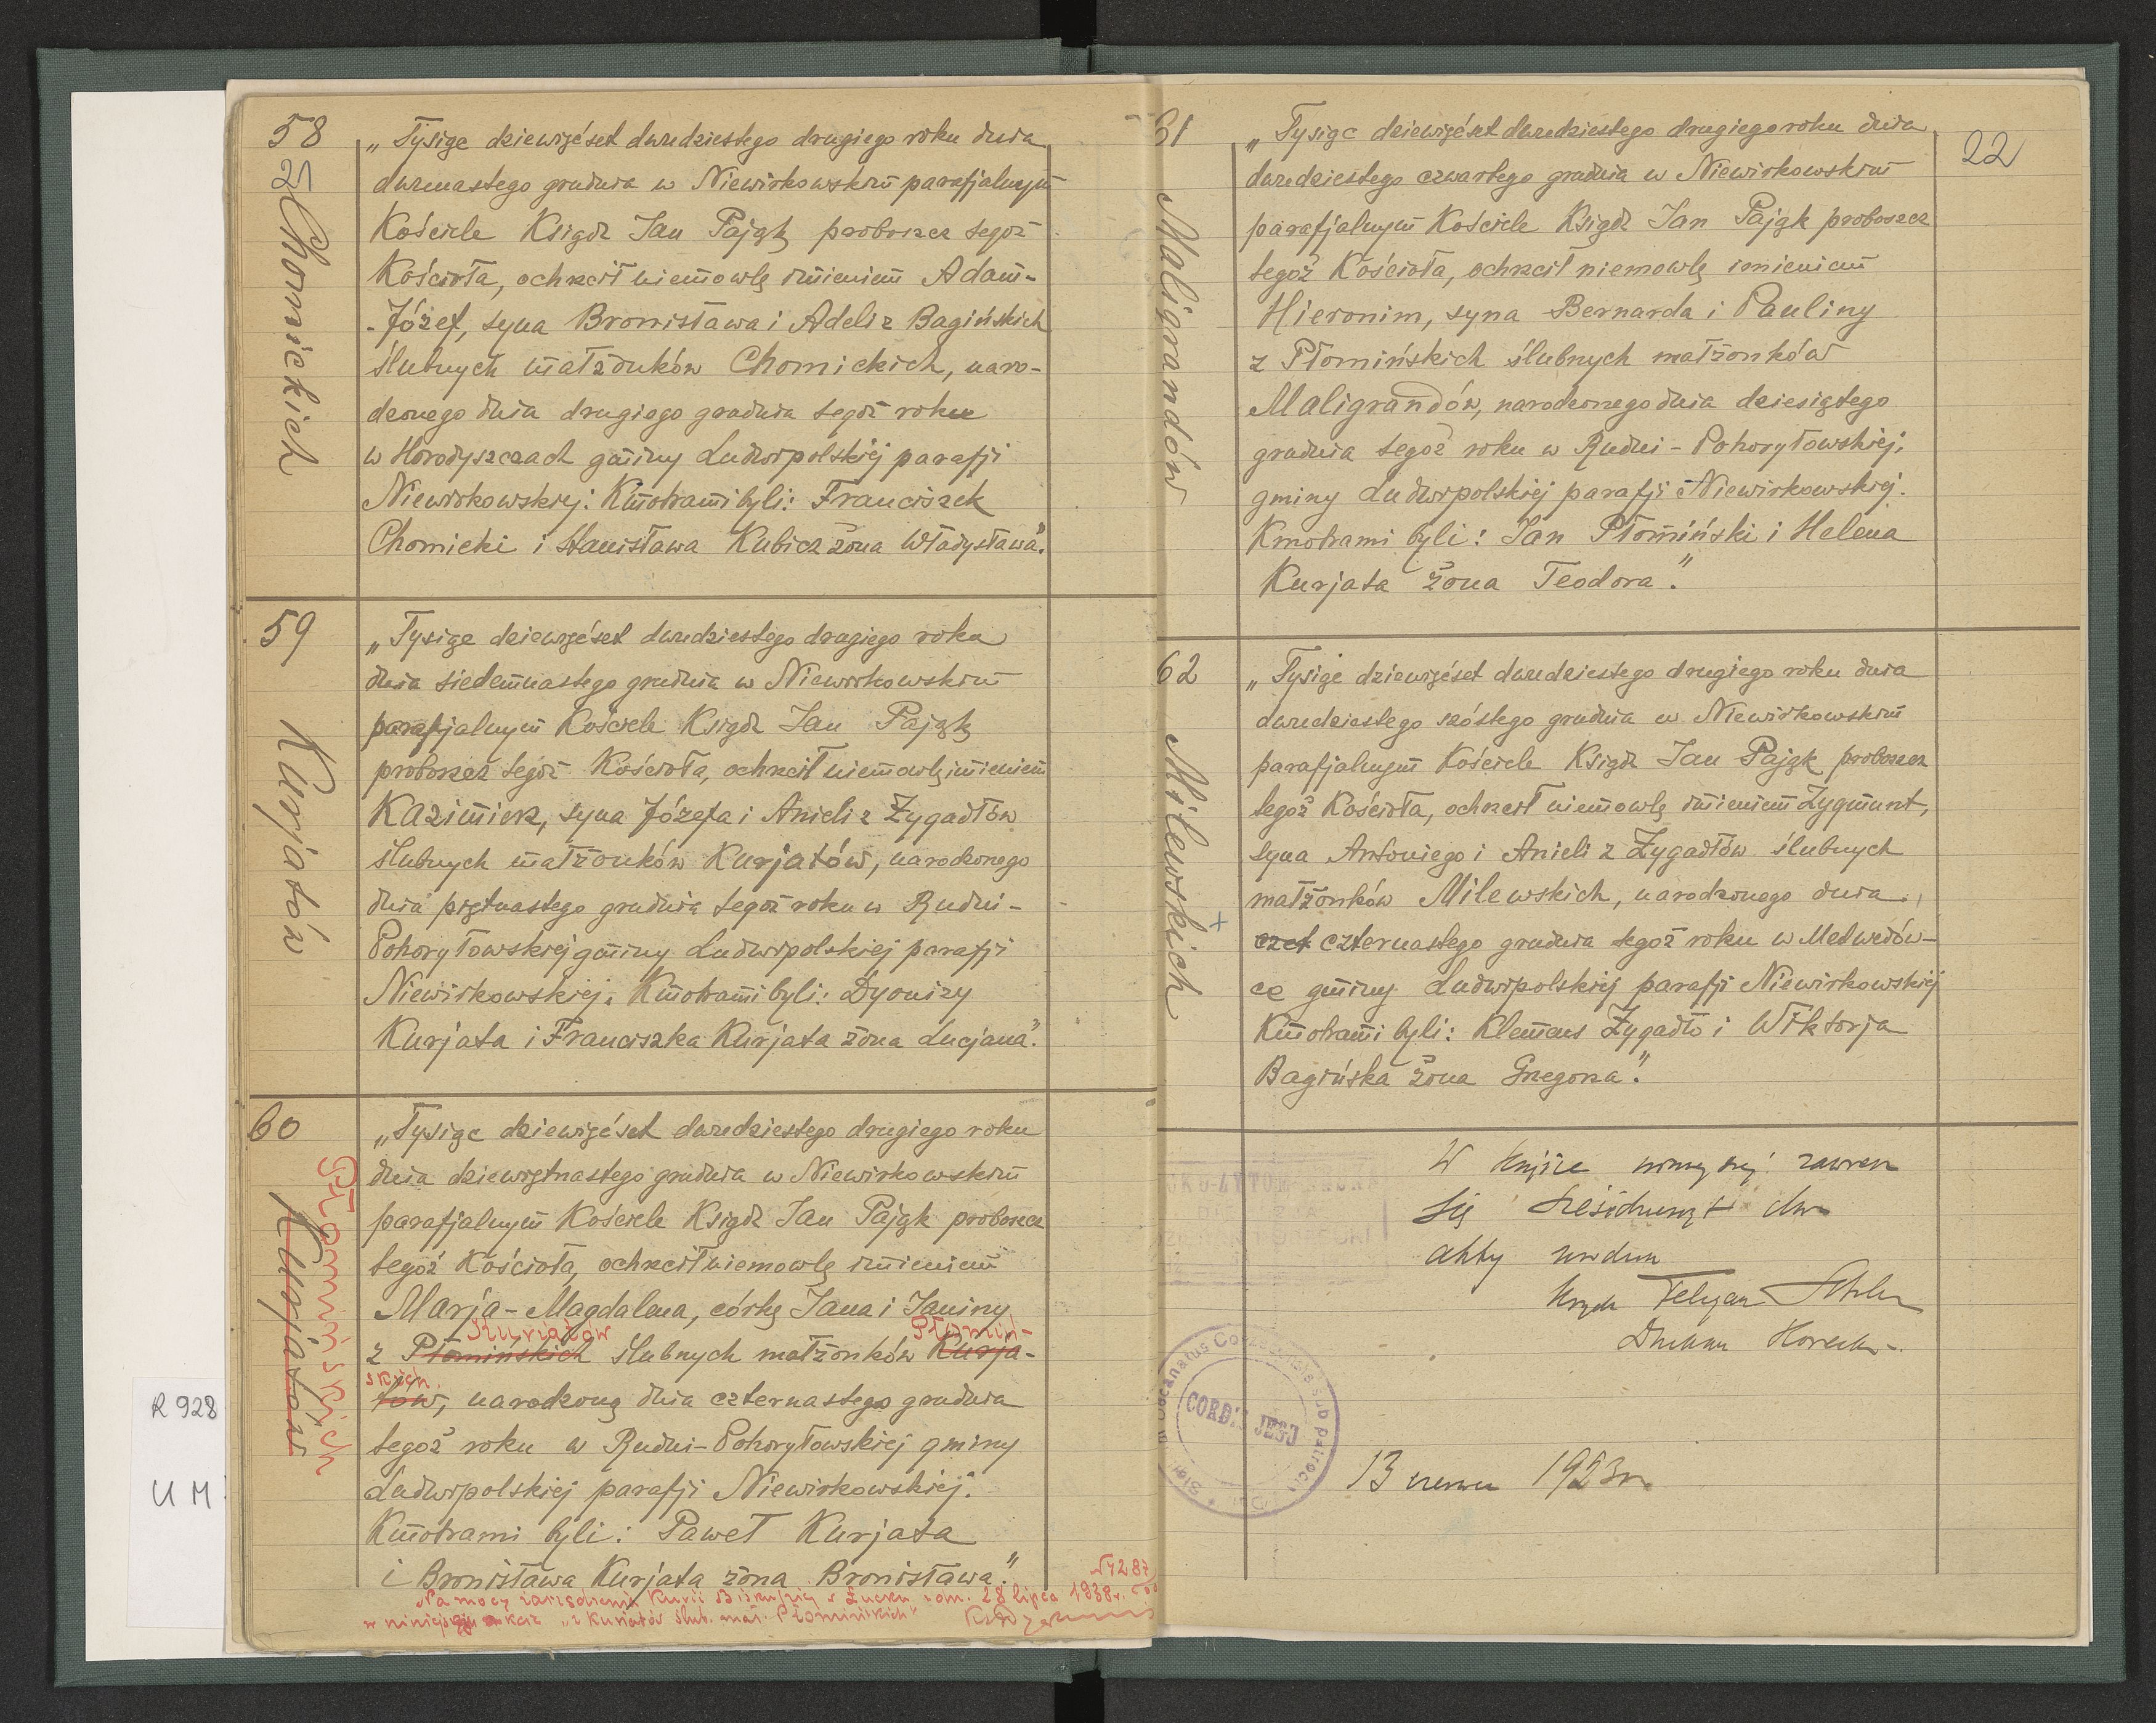 58
Chomickich
„Tysiąc dziewięćset dwudziestego drugiego roku dnia
dwunastego grudnia w Niewirkowskim parafjalnym
Kościele Ksiądz Jan Pająk proboszcz tegoż
Kościoła, ochrzcił niemowlę imieniem Adam-
-Józef, syna Bronisława i Adeli z Bagińskich
ślubnych małżonków Chomickich, naro-
dzonego dnia drugiego grudnia tegoż roku
w Horodyszczach gminy Ludwipolskiej parafji
Niewirkowskiej. Kmotrami byli: Franciszek
Chomicki i Stanisława Kubicz żona Władysława".
59
Kurjatów
„Tysiąc dziewięćset dwudziestego drugiego roku
dnia siedemnastego grudnia w Niewirkowskim
parafjalnym Kościele Ksiądz Jan Pająk
proboszcz tegoż Kościoła, ochrzcił niemowlę imieniem
Kazimierz, syna Józefa i Anieli z Żygadłów
ślubnych małżonków Kurjatów, narodzonego
dnia piętnastego grudnia tegoż roku w Rudni-
Pohoryłowskiej gminy Ludwipolskiej parafji
Niewirkowskiej. Kmotrami byli: Dyonizy
Kurjata i Franciszka Kurjata żona Lucjana".
60
Płomińskich
Kurjatów
„Tysiąc dziewięćset dwudziestego drugiego roku
dnia dziewiętnastego grudnia w Niewirkowskim
parafjalnym Kościele Ksiądz Jan Pająk proboszcz
tegoż Kościoła, ochrzcił niemowlę imieniem
Marja-Magdalena, córkę Jana i Janiny
Kurjatów Płomiń-
z Płomińskich ślubnych małżonków Kurja-
skich
tów, narodzoną dnia czternastego grudnia
tegoż roku w Rudni-Pohoryłowskiej gminy
Ludwipolskiej parafji Niewirkowskiej.
Kmotrami byli: Paweł Kurjata
i Bronisława Kurjata żona Bronisława".
N 4287
Na mocy zarządzenia Kurii Biskupiej w Łucku z dn. 28 lipca 1938 r.
w niniejszym akcie „z Kurjatów ślub. mał. Płomińskich"
R 928
U M
22
61
Maligrandów
„Tysiąc dziewięćset dwudziestego drugiego roku dnia
dwudziestego czwartego grudnia w Niewirkowskim
parafjalnym Kościele Ksiądz Jan Pająk proboszcz
tegoż Kościoła, ochrzcił niemowlę imieniem
Hieronim, syna Bernarda i Pauliny
z Płomińskich ślubnych małżonków
Maligrandów, narodzonego dnia dziesiątego
grudnia tegoż roku w Rudni-Pohoryłowskiej,
gminy Ludwipolskiej parafji Niewirkowskiej.
Kmotrami byli: Jan Płomiński i Helena
Kurjata żona Teodora".
62
Milewskich
„Tysiąc dziewięćset dwudziestego drugiego roku dnia
dwudziestego szóstego grudnia w Niewirkowskim
parafjalnym Kościele Ksiądz Jan Pająk proboszcz
tegoż Kościoła, ochrzcił niemowlę imieniem Zygmunt,
syna Antoniego i Anieli z Żygadłów ślubnych
małżonków Milewskich, narodzonego dnia
czet czternastego grudnia tegoż roku w Medwedów-
ce gminy Ludwipolskiej parafji Niewirkowskiej
Kmotrami byli: Klemens Żygadło i Wiktorja
Bagińska żona Grzegorza".
W księdze niniejszej zawiera
się sześćdziesiąt dwa
akty
CORDIS JESU
sub patroci
13 czerwca 1923 r.